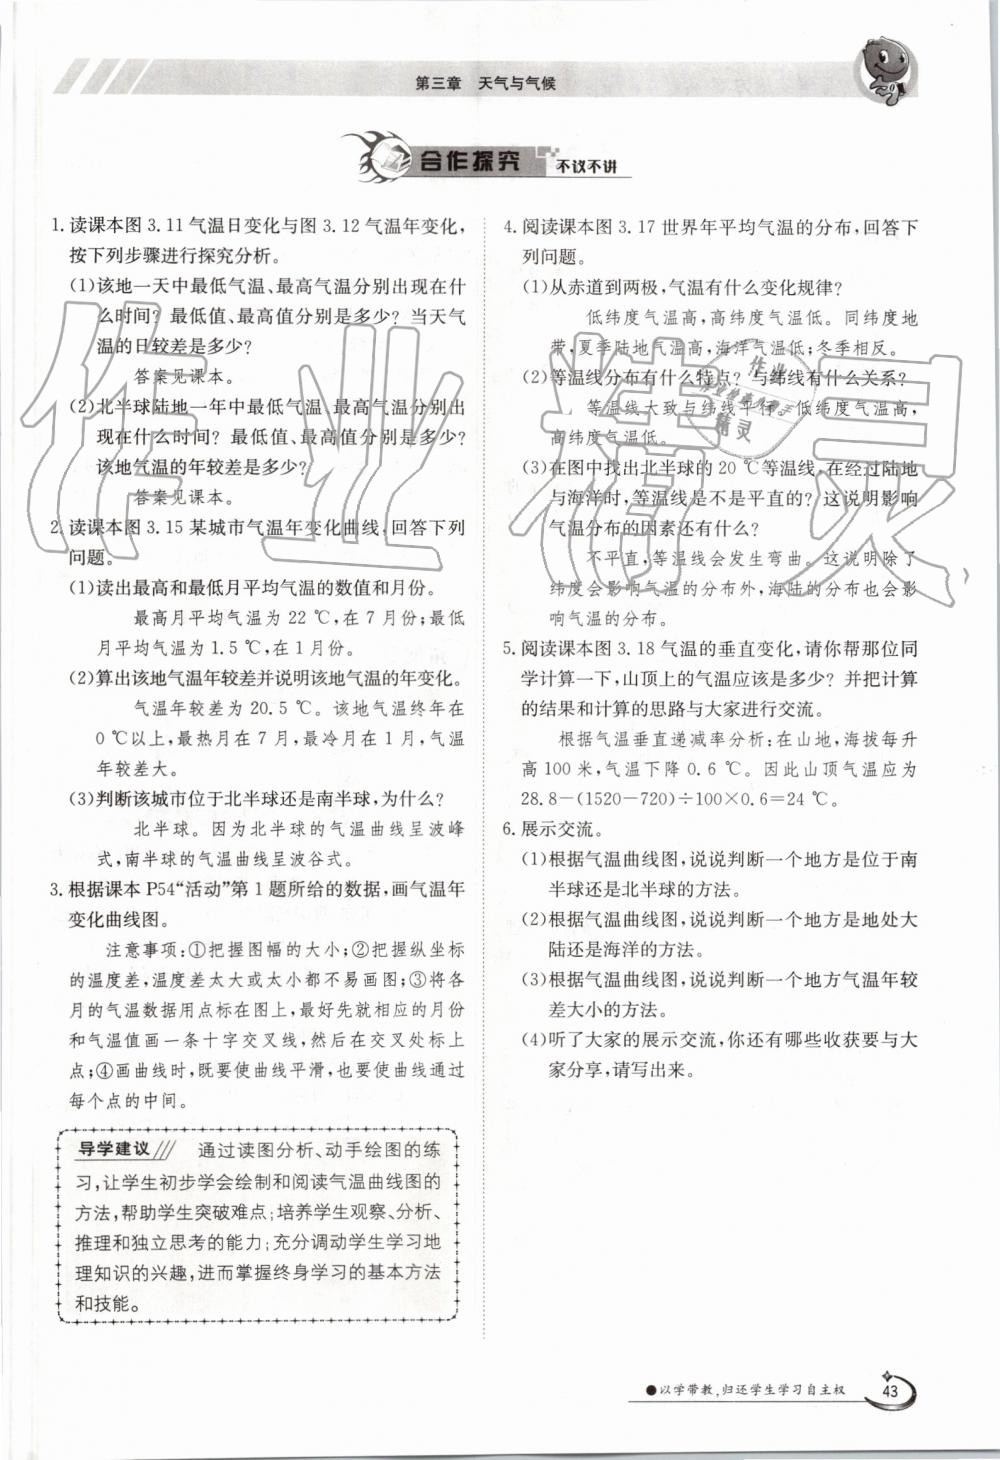 第三章 天气与气候
合作探究 不议不讲
1. 读课本图 3.11 气温日变化与图 3.12 气温年变化，
按下列步骤进行探究分析。
(1)该地一天中最低气温、最高气温分别出现在什
么时间？最低值、最高值分别是多少？当天气
温的日较差是多少？
答案见课本。
(2)北半球陆地一年中最低气温、最高气温分别出
现在什么时间？最低值、最高值分别是多少？
该地气温的年较差是多少？
答案见课本。
2. 读课本图 3.15 某城市气温年变化曲线，回答下列
问题。
(1)读出最高和最低月平均气温的数值和月份。
最高月平均气温为 22 ℃，在 7 月份；最低
月平均气温为 1.5 ℃，在 1 月份。
(2)算出该地气温年较差并说明该地气温的年变化。
气温年较差为 20.5 ℃。该地气温终年在
0 ℃以上，最热月在 7 月，最冷月在 1 月，气温
年较差大。
(3)判断该城市位于北半球还是南半球，为什么？
北半球。因为北半球的气温曲线呈波峰
式，南半球的气温曲线呈波谷式。
3. 根据课本 P54“活动”第 1 题所给的数据，画气温年
变化曲线图。
注意事项：①把握图幅的大小；②把握纵坐标
的温度差，温度差太大或太小都不易画图；③将各
月的气温数据用点标在图上，最好先就相应的月份
和气温值画一条十字交叉线，然后在交叉处标上
点；④画曲线时，既要使曲线平滑，也要使曲线通过
每个点的中间。
导学建议 通过读图分析、动手绘图的练
习，让学生初步学会绘制和阅读气温曲线图的
方法，帮助学生突破难点；培养学生观察、分析、
推理和独立思考的能力；充分调动学生学习地
理知识的兴趣，进而掌握终身学习的基本方法
和技能。
4. 阅读课本图 3.17 世界年平均气温的分布，回答下
列问题。
(1)从赤道到两极，气温有什么变化规律？
低纬度气温高，高纬度气温低。同纬度地
带，夏季陆地气温高，海洋气温低；冬季相反。
(2)等温线分布有什么特点？与纬线有什么关系？
等温线大致与纬线平行。低纬度气温高，
高纬度气温低。
(3)在图中找出北半球的 20 ℃等温线，在经过陆地
与海洋时，等温线是不是平直的？这说明影响
气温分布的因素还有什么？
不平直，等温线会发生弯曲。这说明除了
纬度会影响气温的分布外，海陆的分布也会影
响气温的分布。
5. 阅读课本图 3.18 气温的垂直变化，请你帮那位同
学计算一下，山顶上的气温应该是多少？并把计算
的结果和计算的思路与大家进行交流。
根据气温垂直递减率分析：在山地，海拔每升
高 100 米，气温下降 0.6 ℃。因此山顶气温应为
28.8－(1520－720)÷100×0.6＝24 ℃。
6. 展示交流。
(1)根据气温曲线图，说说判断一个地方是位于南
半球还是北半球的方法。
(2)根据气温曲线图，说说判断一个地方是地处大
陆还是海洋的方法。
(3)根据气温曲线图，说说判断一个地方气温年较
差大小的方法。
(4)听了大家的展示交流，你还有哪些收获要与大
家分享，请写出来。
●以学带教，归还学生学习自主权
43
作业精灵